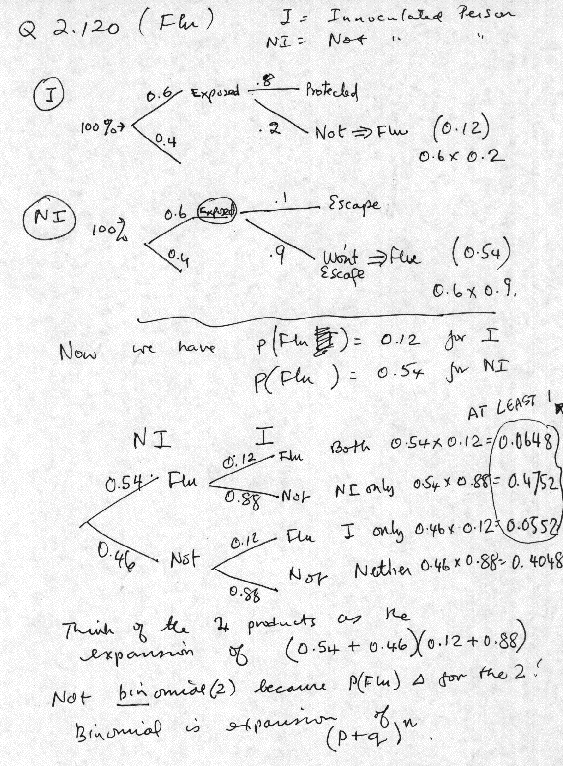 Q 2.120 (Flu)
I = Innoculated Person
NI = Not " "
I
100%→ 0.6 Exposed .8 Protected
0.4 .2 Not ⇒ Flu (0.12)
0.6 x 0.2
NI
100% 0.6 Exposed .1 Escape
0.4 .9 Won't Escape ⇒ Flu (0.54)
0.6 x 0.9.
Now we have P(Flu ) = 0.12 for I
P(Flu ) = 0.54 for NI
AT LEAST 1
NI I
0.54 Flu 0.12 Flu Both 0.54 x 0.12 = 0.0648
0.88 Not NI only 0.54 x 0.88 = 0.4752
0.46 Not 0.12 Flu I only 0.46 x 0.12 = 0.0552
0.88 Not Neither 0.46 x 0.88 = 0.4048
Think of the 4 products as the
expansion of (0.54 + 0.46)(0.12 + 0.88)
Not binomial(2) because P(Flu) Δ for the 2!
Binomial is expansion of (p+q)^n.